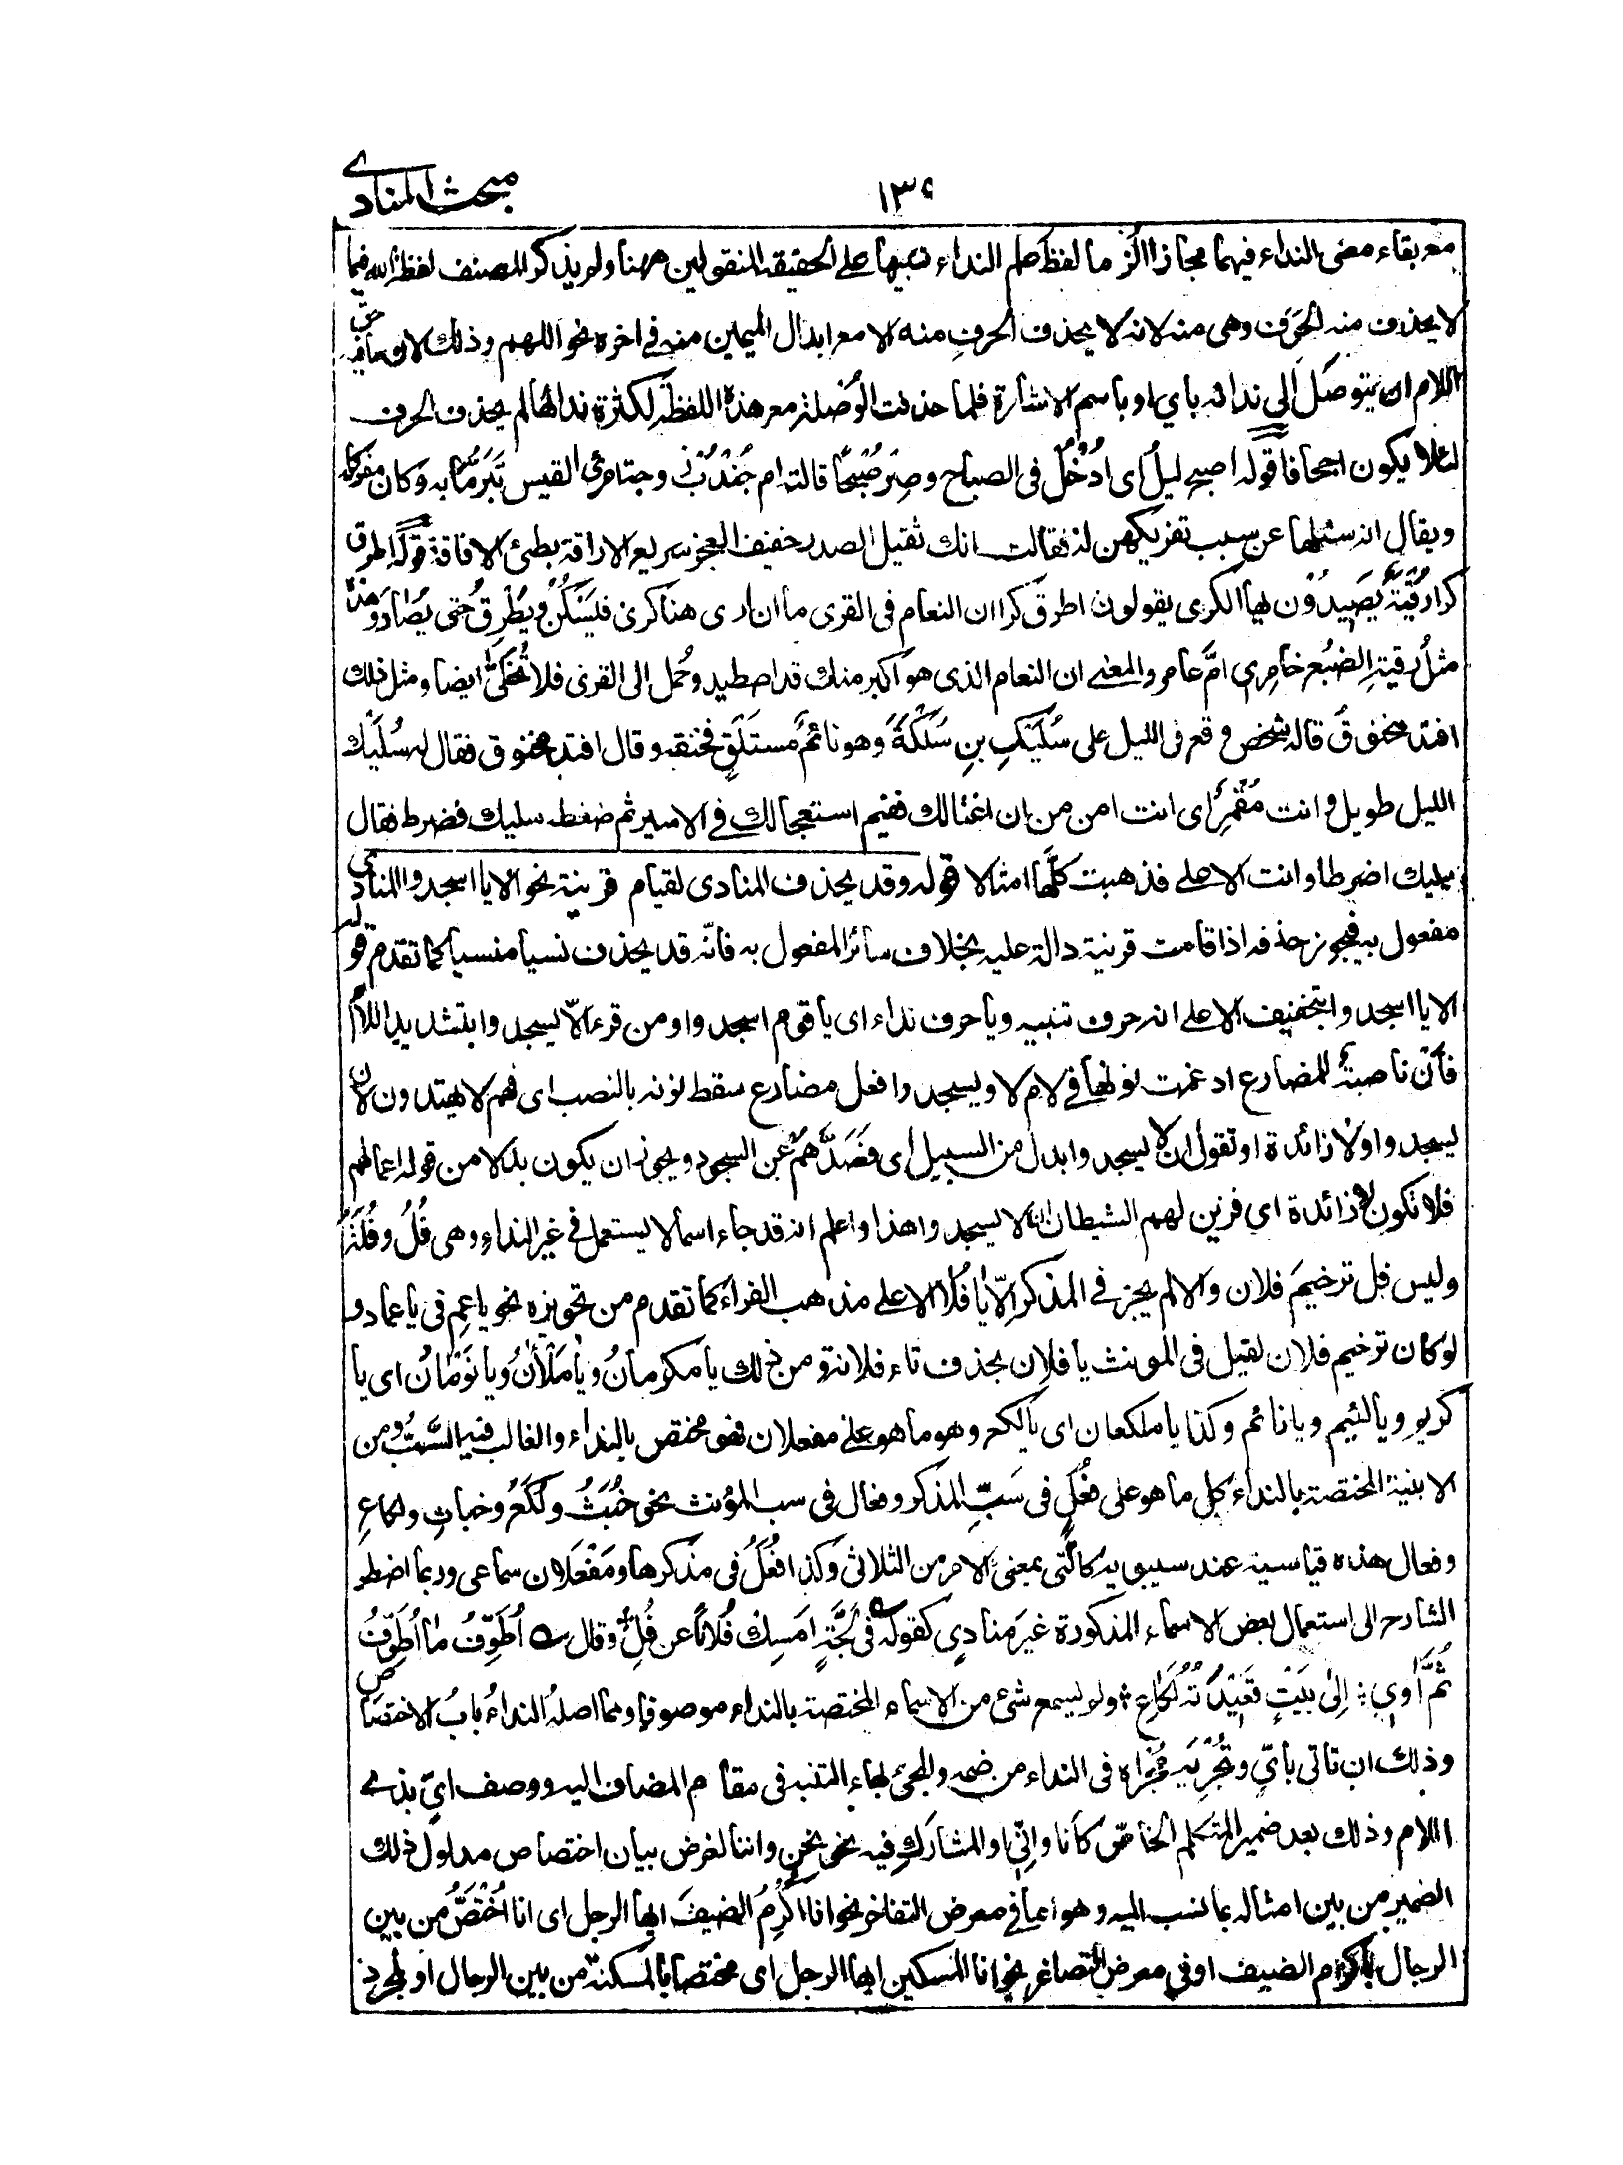 مبحث المنادى
١٣٤
مع بقاء معنى النداء فيهما مجازا الزما لفظ علم النداء تنبيها على الحقيقة المنقولين منها ولم يذكر المصنف لفظ الله فيما
لا يحذف منه الحرف وهى منه لانه لا يحذف الحرف منه الا مع ابدال الميمين منه فى اخره نحو اللهم وذلك لان حق ما فيه
اللام ان يتوصل الى ندائه باي او باسم الاشارة فلما حذفت الوصلة مع هذه اللفظة لكثرة ندائها لم يحذف الحرف
لئلا يكون اجحافا قوله اصبح ليل اى ادْخُلْ فى الصباح وصِرْ صُبْحًا قالته ام جُنْدُبْ زوجة امرئ القيس تَبَرُّمًا به وكان مفركا
ويقال انه سئلها عن سبب تفريكهن له فقالت انك ثقيل الصدر خفيف العجز سريع الاراقة بطئ الافاقة قوله اطرق
كرا رُقْيَةٌ يَصِيدُون بها الكرى يقولون اطرق كرا ان النعام فى القرى ما ان ارى هنا كرى فيَسْكُنُ ويُطْرِقُ حتى يُصَادَ وهذه
مثلُ رقيةِ الضبُع خامِرِي امَّ عامر والمعنى ان النعام الذى هو اكبر منك قد اصطيد وحُمل الى القرى فلا تُخَلّىٰ ايضا ومثل ذلك
افتد مخنوقُ قاله شخص وقع فى الليل على سُلَيْكِ بنِ سَلَكَةَ وهو نائمٌ مستَلْقٍ فخنقه وقال افتد مخنوق فقال له سُلَيْك
الليل طويل وانت مُقْمِرٌ اى انت امن من ان اغتالك ففيم استعجالك فى الاسير ثم ضغطه سليك فضرط فقال
سليك اضرطا وانت الاعلى فذهبت كلُّها امثالا قوله وقد يحذف المنادى لقيام قرينة نحو الا يا اسجدوا المنادى
مفعول به فيجوز حذفه اذا قامت قرينة دالة عليه بخلاف سائر المفعول به فانّه قد يحذف نسيا منسيا كما تقدم قوله
الا يا اسجدوا بتخفيف الا على انه حرف تنبيه ويا حرف نداء اى يا قوم اسجدوا ومن قرء الّا يسجدوا بتشديد اللام
فأَنْ ناصبةٌ للمضارع ادغمت نونها فى لام لا ويسجدوا فعل مضارع سقط نونه بالنصب اى فهم لا يهتدون لان
يسجدوا ولا زائدة او تقول ان لا يسجدوا بدل من السبيل اى فَصَدَّهُمْ عن السجود ويجوز ان يكون بدلا من قوله اعمالهم
فلا تكون لا زائدة اى فزين لهم الشيطان ان لا يسجدوا هذا واعلم انه قد جاء اسما لا يستعمل فى غير النداء وهى فُلُ وفُلَةُ
وليس فل ترخيمَ فلان والا لم يجز فى المذكر الّا يا فُلَا الا على مذهب الفراء كما تقدم من تجويزه نحو يا عِمِ فى يا عماد و
لو كان ترخيم فلان لقيل فى المونث يا فلان بحذف تاء فلانة ومن ذلك يا مكرمانُ ويا مَلْأَمَانُ ويا نَوْمَانُ اى يا
كريم ويا لئيم ويا نائم وكذا يا ملكعان اى يا لكع وهو ما هو على مفعلان فهو مختص بالنداء والغالب فيه السَّبُّ ومن
الابنية المختصة بالنداء كل ما هو على فُعَلٍ فى سَبِّ المذكر وفعال فى سب المؤنث نحو خُبَثُ ولُكَعُ وخباثِ ولكاعِ
وفعال هذه قياسية عند سيبويه كالّتى بمعنى الامر من الثلاثى وكذا فُعَلُ فى مذكرها ومَفْعَلان سماعى وربما اضطر
الشارح الى استعمال بعض الاسماء المذكورة غيرَ منادى كقوله فى لَجَّةٍ امسِكْ فُلَانًا عن فُلِ وقال اُطَوِّفُ ما اُطَوِّفُ
ثُمَّ اٰوِي : اِلىٰ بَيْتٍ قَعِيْدَتُهُ لَكَاعِ ولم يسمع شئ من الاسماء المختصة بالنداء موصوفا ومما اصلهُ النداءُ بابُ الاختصاص
وذلك ان تاتى بأيّ وتُجْرِيَه مُجْراه فى النداء من ضمه والمجئ بهاء التنبه فى مقام المضاف اليه ووصف ايّ بذى
اللام وذلك بعد ضمير المتكلم الخاصّ كانا وانّى او المشارَكِ فيه نحو نحن واننا لغرض بيان اختصاص مدلول ذلك
الضمير من بين امثاله بما نسب اليه وهو اما فى معرض التفاخر نحو انا اُكْرِمُ الضيفَ ايها الرجل اى انا اُخْتُصُّ من بين
الرجال باكرام الضيف او فى معرض التصاغر نحو انا المسكين ايها الرجل اى مختصا بالمسكنة من بين الرجال او لمجرد